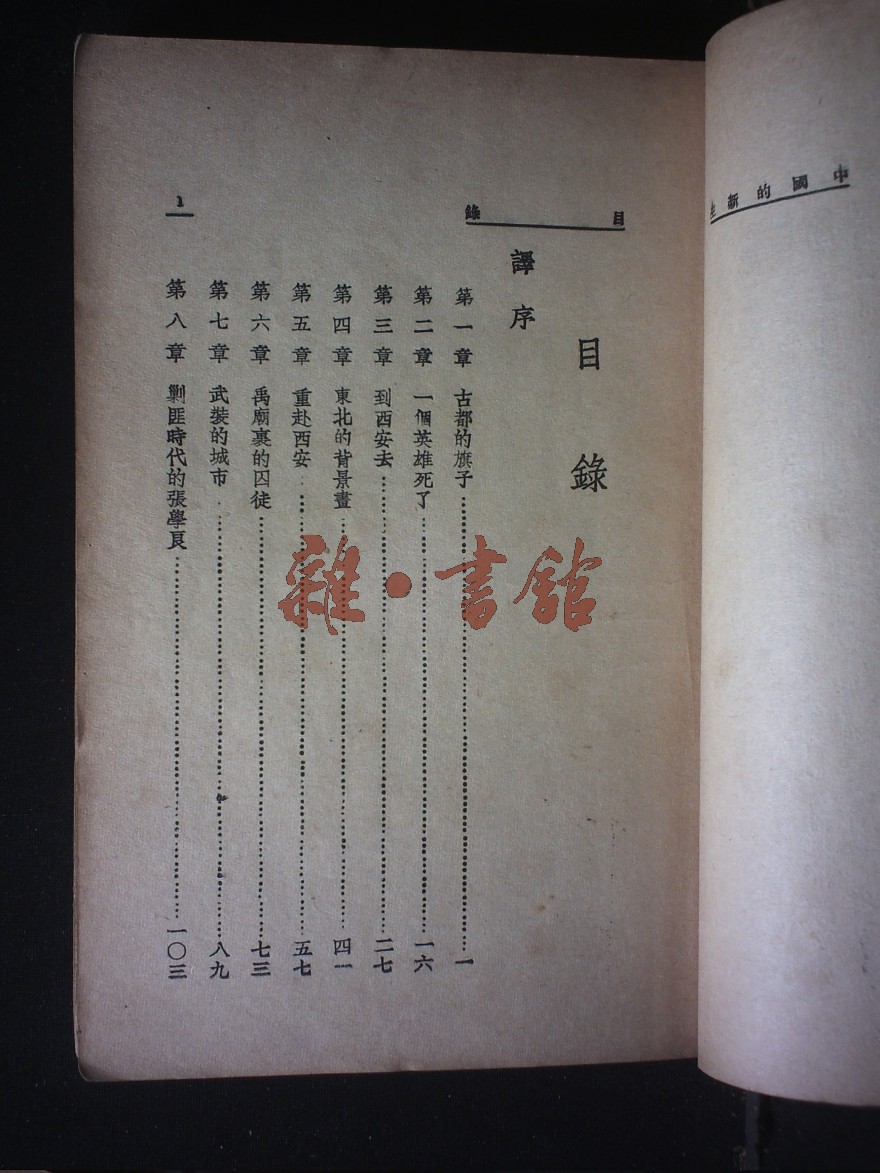 中國的新生
目錄
目錄
譯序
第一章 古都的旗子 一
第二章 一個英雄死了 一六
第三章 到西安去 二七
第四章 東北的背景畫 四一
第五章 重赴西安 五七
第六章 禹廟裹的囚徒 七三
第七章 武裝的城市 八九
第八章 剿匪時代的張學良 一〇三
1
雜·書館